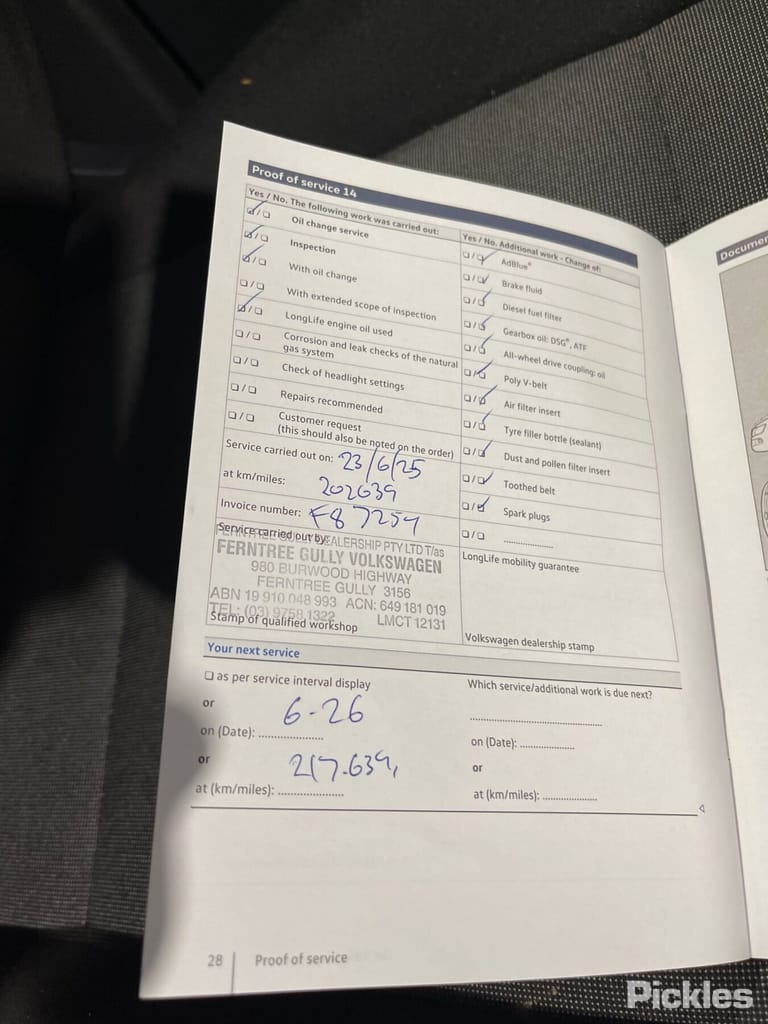 Proof of service 14
Yes / No. The following work was carried out:
☑/☐ Oil change service
☑/☐ Inspection
☑/☐ With oil change
☐/☐ With extended scope of inspection
☑/☐ LongLife engine oil used
☐/☐ Corrosion and leak checks of the natural
gas system
☐/☐ Check of headlight settings
☐/☐ Repairs recommended
☐/☐ Customer request
(this should also be noted on the order)
Service carried out on: 23/6/25
at km/miles: 202639
Invoice number: F87254
Service carried out by:
FERNTREE GULLY DEALERSHIP PTY LTD T/as
FERNTREE GULLY VOLKSWAGEN
980 BURWOOD HIGHWAY
FERNTREE GULLY 3156
ABN 19 910 048 993 ACN: 649 181 019
TEL: (03) 9758 1322 LMCT 12131
Stamp of qualified workshop
Yes / No. Additional work - Change of:
☐/☑ AdBlue®
☐/☑ Brake fluid
☐/☑ Diesel fuel filter
☐/☑ Gearbox oil: DSG®, ATF
☐/☑ All-wheel drive coupling: oil
☐/☑ Poly V-belt
☐/☑ Air filter insert
☐/☑ Tyre filler bottle (sealant)
☐/☑ Dust and pollen filter insert
☐/☑ Toothed belt
☐/☑ Spark plugs
☐/☐ ..............
LongLife mobility guarantee
Volkswagen dealership stamp
Your next service
☐ as per service interval display
or
6-26
on (Date): ....................
or
217.639,
at (km/miles): ....................
Which service/additional work is due next?
........................................
on (Date): ................
or
at (km/miles): ................
28 Proof of service
Pickles